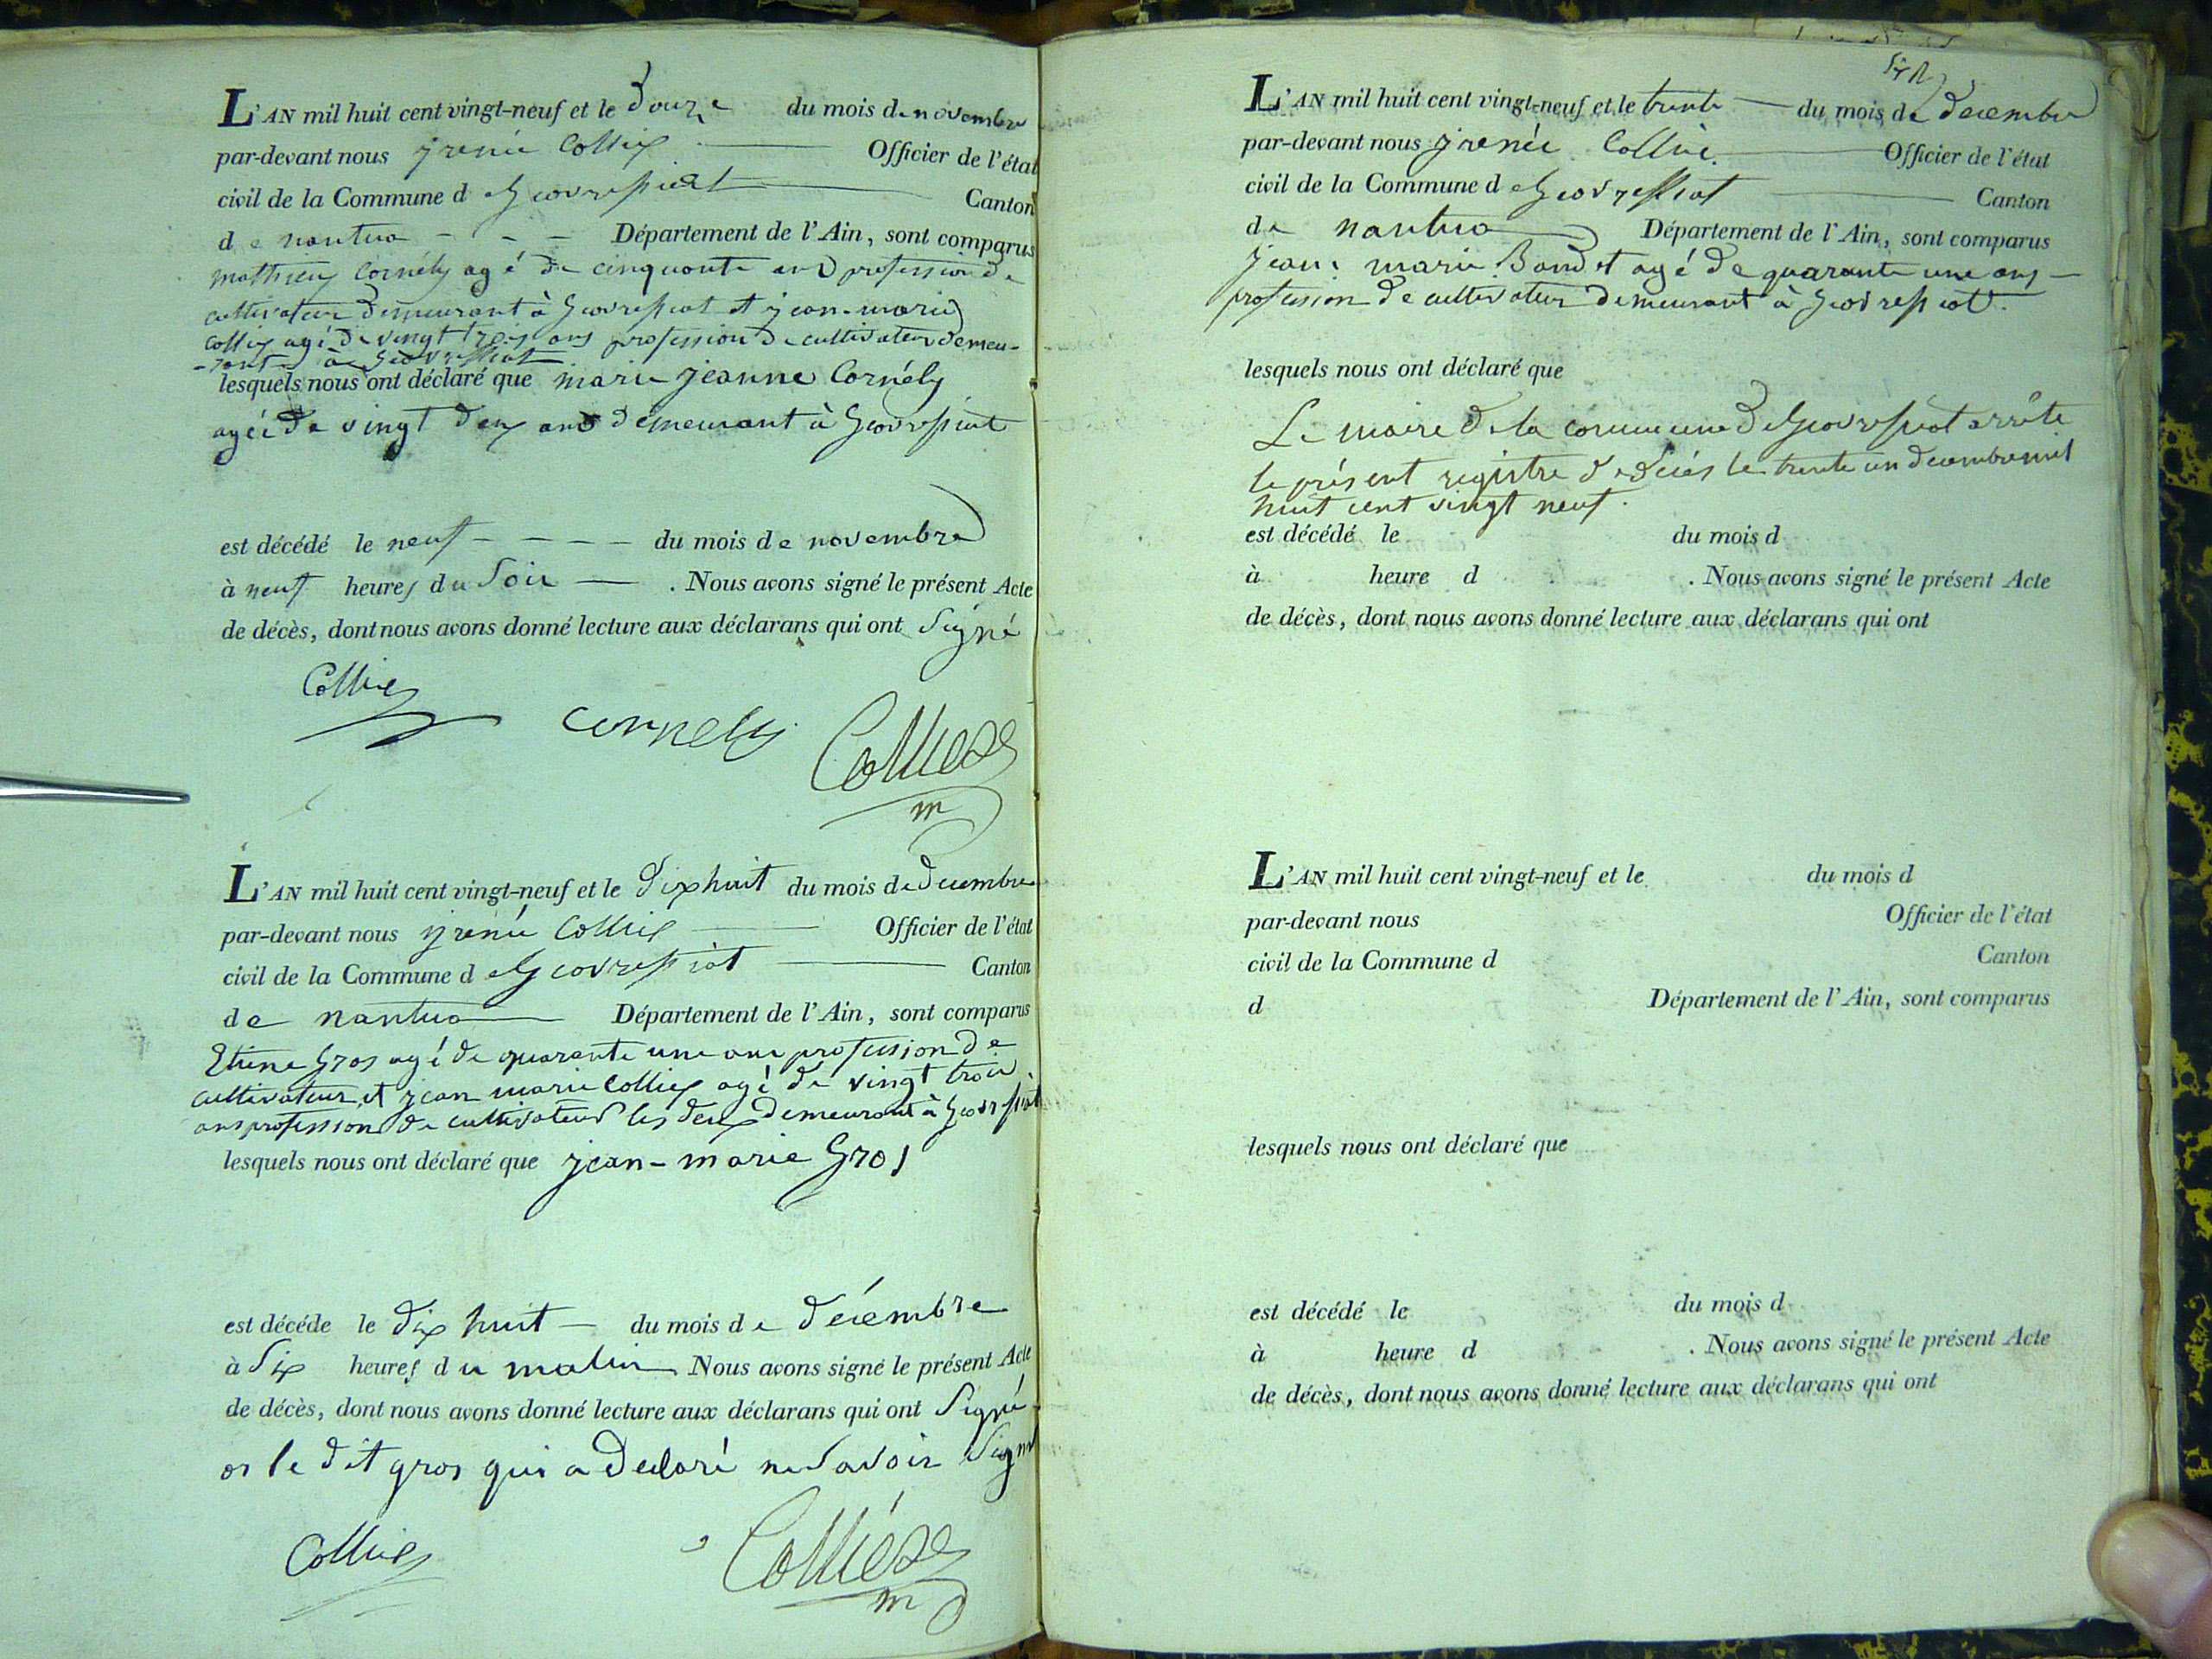 L'AN mil huit cent vingt-neuf et le douze du mois de novembre
par-devant nous jrenée Colliex Officier de l'état
civil de la Commune de geovressiat Canton
de nantua - - - Département de l'Ain, sont comparus
matthieu Cornély agé de cinquante ans profession de
cultivateur demeurant à geovressiat et jean-marie
Colliex agé de vingt trois ans profession de cultivateur demeu-
-rant à geovressiat
lesquels nous ont déclaré que marie jeanne Cornély
agée de vingt deux ans demeurant à geovressiat
est décédé le neuf - - - - du mois de novembre
à neuf heures du soir . Nous avons signé le présent Acte
de décès, dont nous avons donné lecture aux déclarans qui ont signé
Colliex
cornely
L'AN mil huit cent vingt-neuf et le dix huit du mois de decembre
par-devant nous jrenée Colliex Officier de l'état
civil de la Commune de geovressiat Canton
de nantua Département de l'Ain, sont comparus
Etiene gros agé de quarante une ans profession de
cultivateur et jean marie Colliex agé de vingt trois
ans profession de cultivateur les deux demeurant à geovressiat
lesquels nous ont déclaré que jean-marie gros
est décédé le dix huit - du mois de décembre
à six heures du matin Nous avons signé le présent Acte
de décès, dont nous avons donné lecture aux déclarans qui ont signé
le dit gros qui a declaré ne savoir signé
Colliex
L'AN mil huit cent vingt-neuf et le trente du mois de decembre
par-devant nous jrenée Colliex Officier de l'état
civil de la Commune de geovressiat Canton
de nantua Département de l'Ain, sont comparus
jean marie Bondet agé de quarante une ans
profession de cultivateur demeurant à geovressiat.
lesquels nous ont déclaré que
Le maire de la commune de geovressiat arrête
le présent registre de décés le trente un decembre mil
huit cent vingt neuf.
est décédé le du mois d
à heure d . Nous avons signé le présent Acte
de décès, dont nous avons donné lecture aux déclarans qui ont
L'AN mil huit cent vingt-neuf et le du mois d
par-devant nous Officier de l'état
civil de la Commune d Canton
d Département de l'Ain, sont comparus
lesquels nous ont déclaré que
est décédé le du mois d
à heure d . Nous avons signé le présent Acte
de décès, dont nous avons donné lecture aux déclarans qui ont